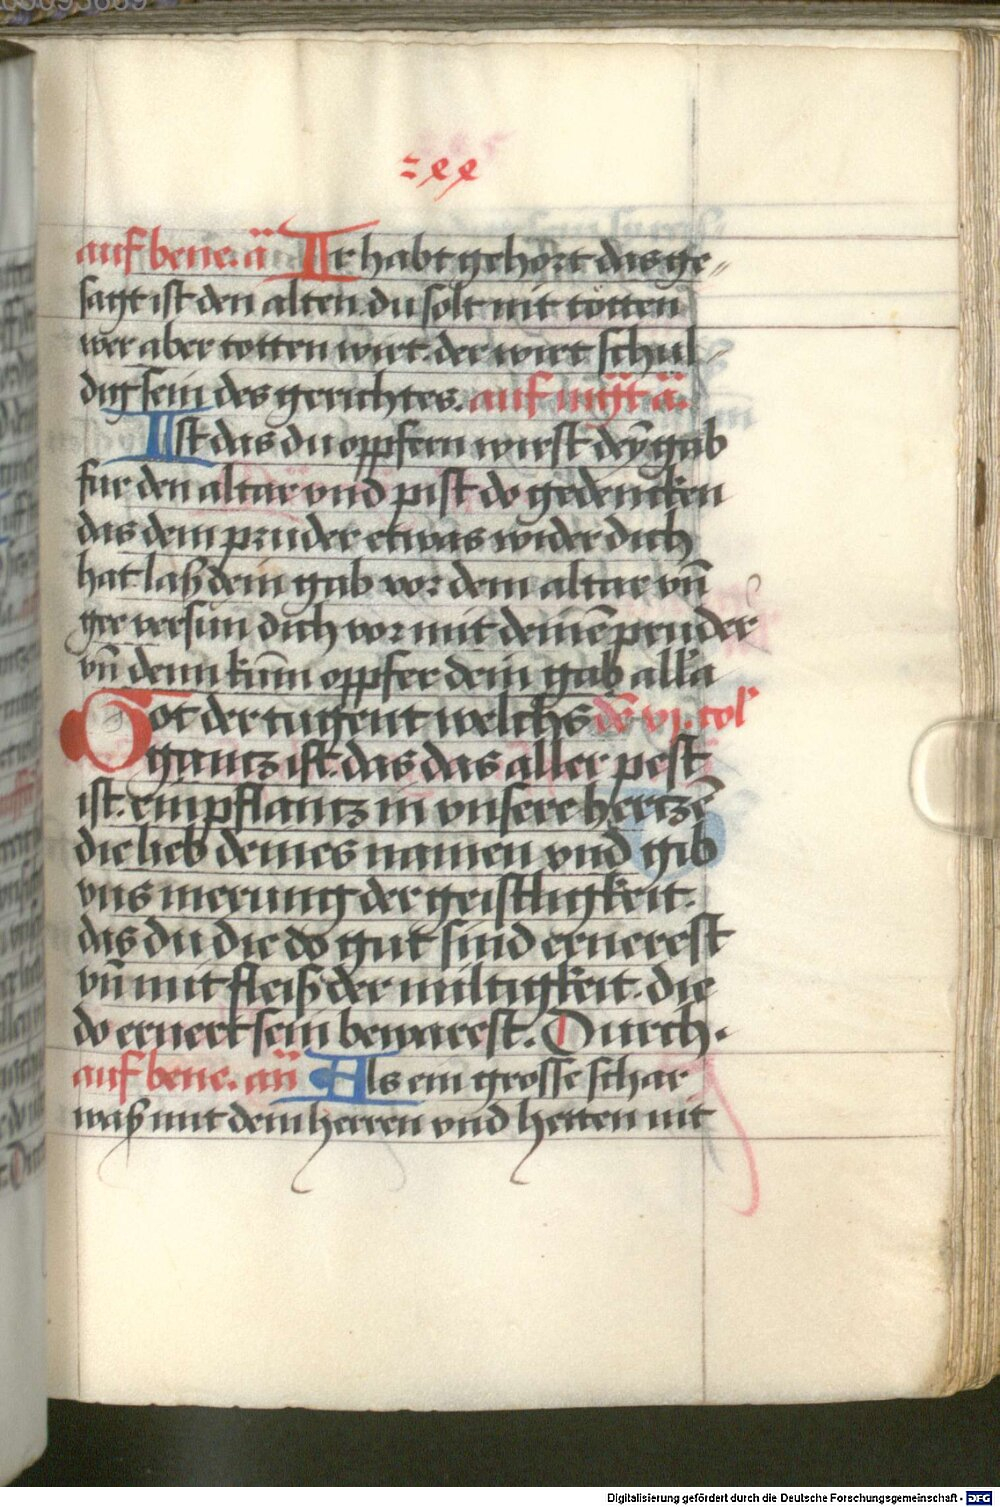 zxx
auf bene. ā Ir habt gehort das ge-
sagt ist den alten. du solt nit tötten
wer aber totten wirt. der wirt schul-
dig sein des gerichtes. auf mgt̄ ā.
Ist das du oppfern wirst deÿ gab
fur den altar vnd pist do gedencken
das dein pruder etwas wider dich
hat. laß dein gab vor dem altar vn̄
gee versun dich vor mit deinē pruder
vn̄ denn kūm oppfer dein gab alla
Got der tugent welchs dē vj. col
gantz ist. das das aller pest
ist. einpflantz in vnsere hertzē
die lieb deines namen vnd gib
vns merung der geistligkeit.
das du die do gut sind ernerest
vn̄ mit fleiß der miltigkeit. die
do ernert sein bewarest. Durch.
auf bene. an̄ Als ein grosse schar
waß mit dem herren vnd hetten nit
Digitalisierung gefördert durch die Deutsche Forschungsgemeinschaft - DFG